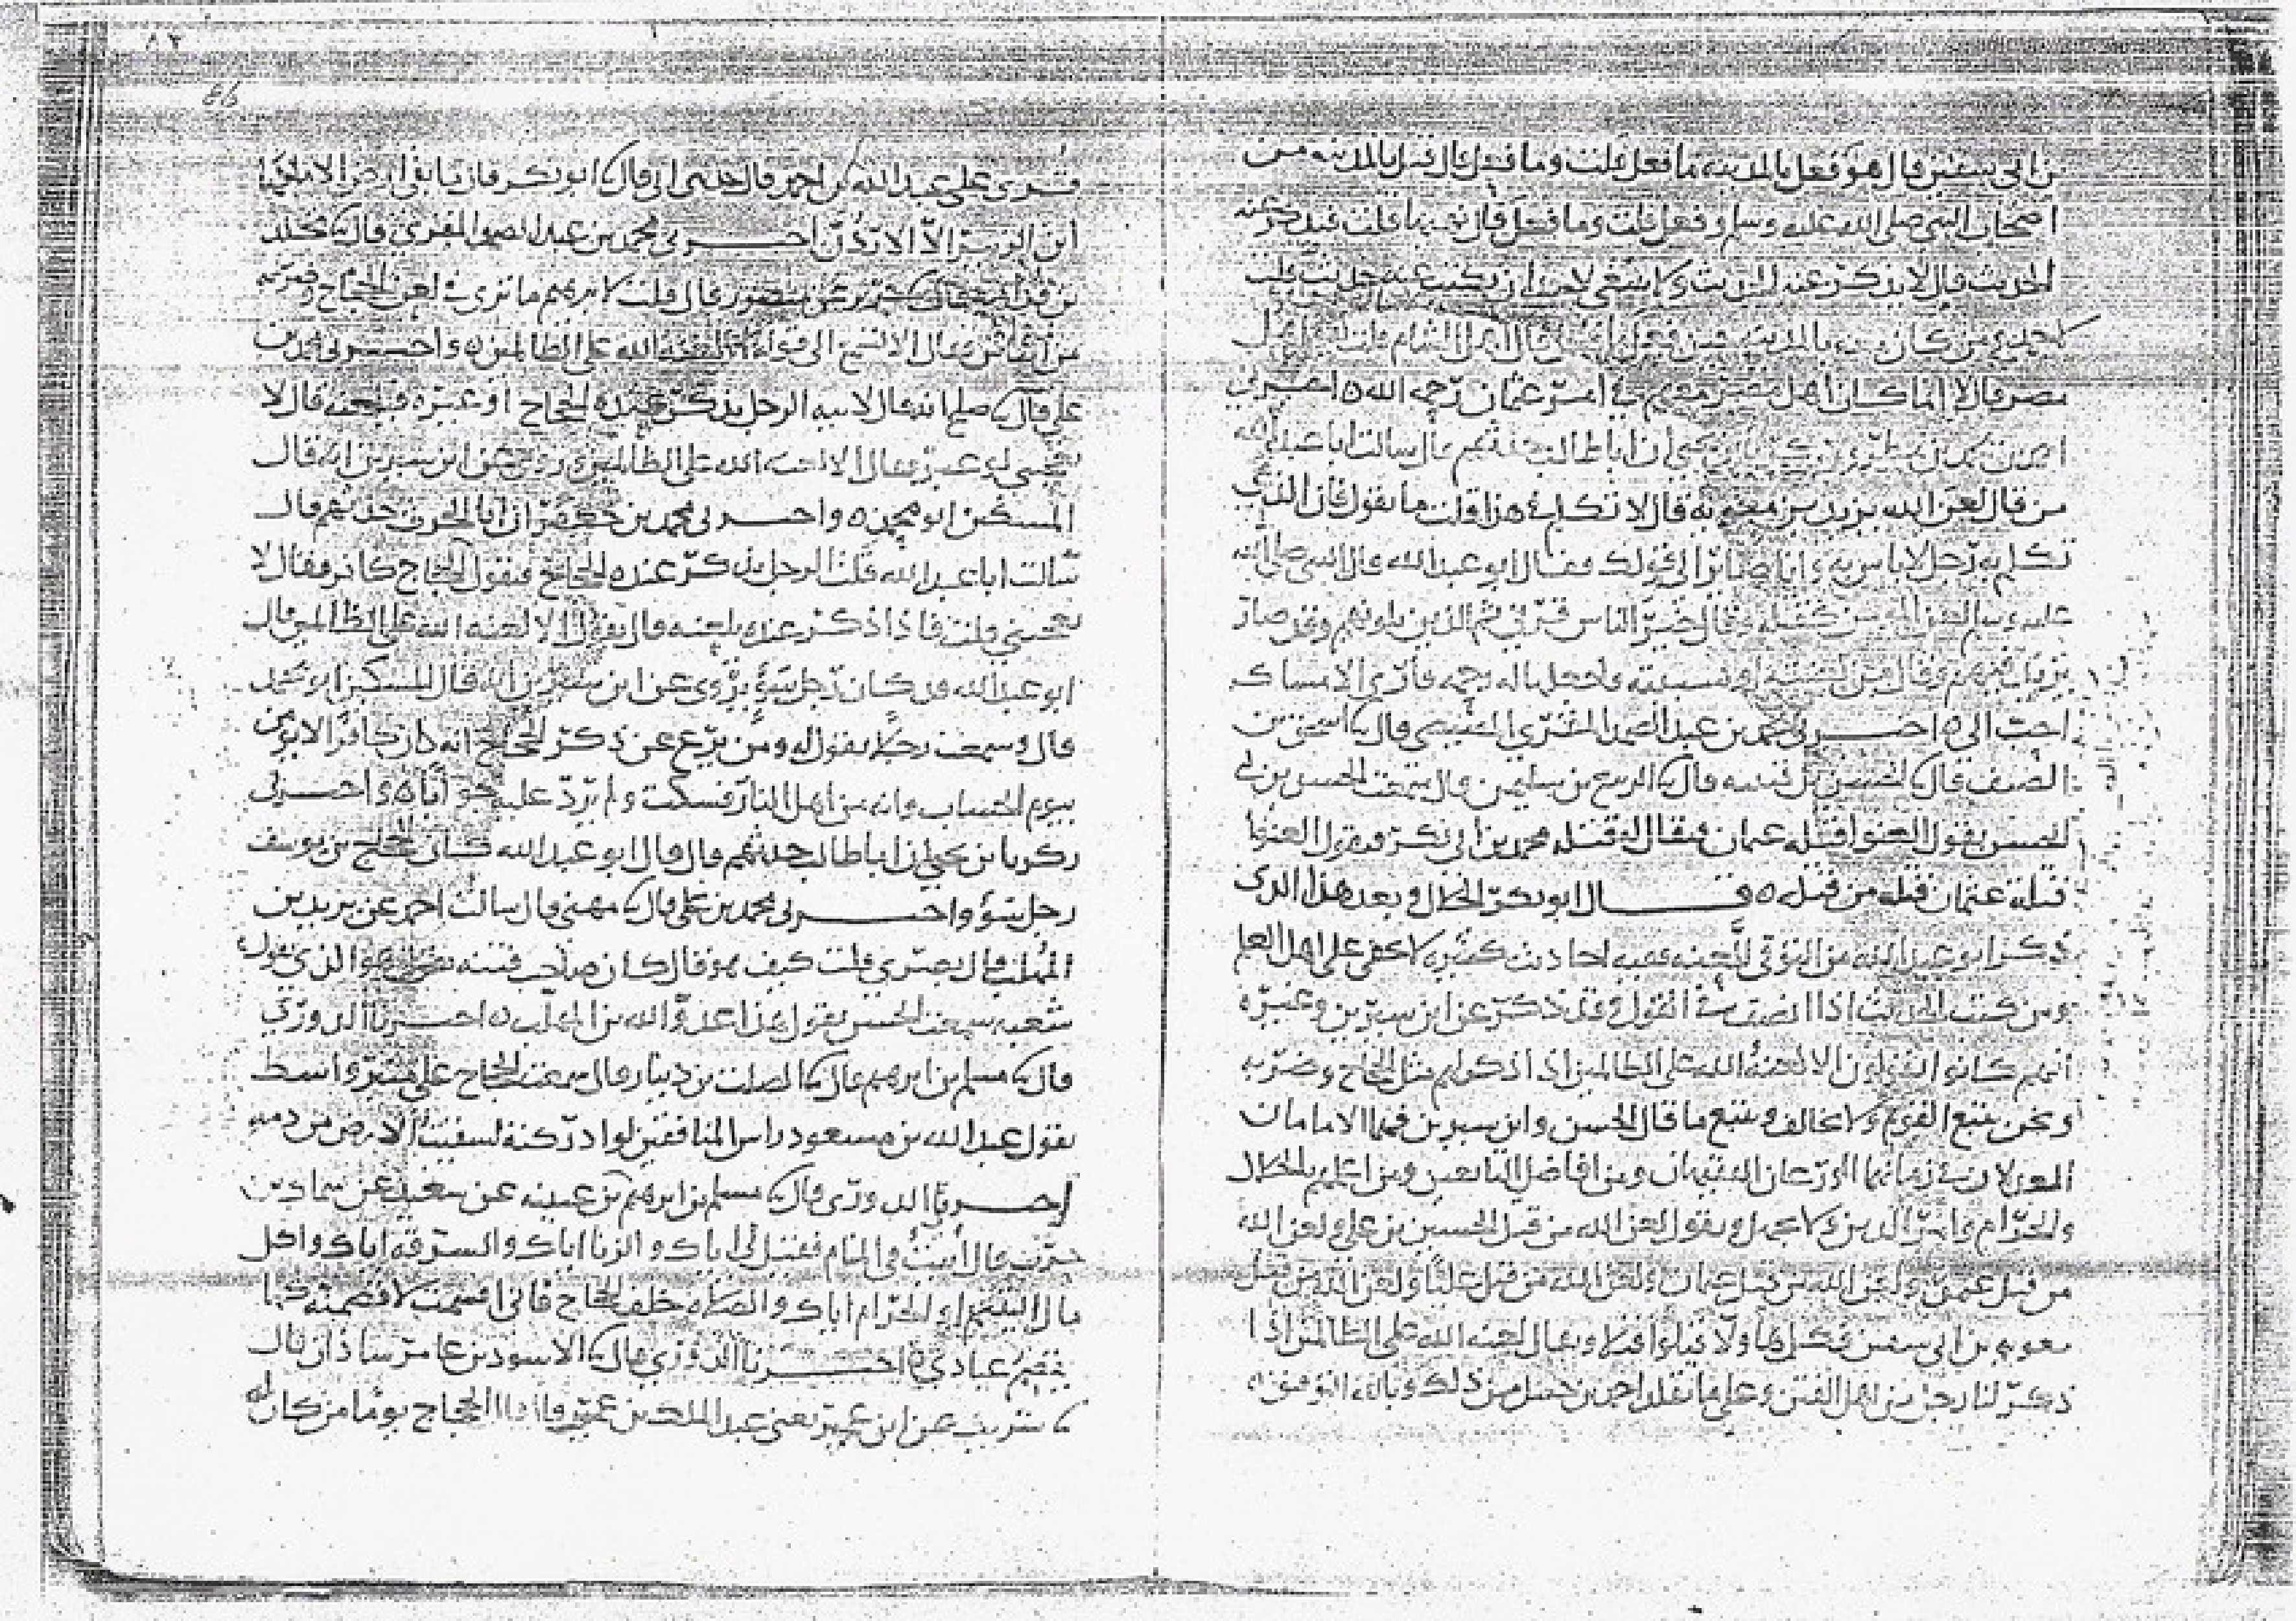 بن ابى سفين قال هو فعل بالمدينه ما فعل قلت وما فعل قال قتل بالمدينه من
اصحاب النبى صلى الله عليه وسلم وفعل قلت وما فعل قال نهبها قلت فيذكر عنه
الحديث قال لا يذكر عنه الحديث ولا ينبغى لاحد ان يكتب عنه حديث قلت
لاحمد ومن كان معه بالمدينه حين فعل ما فعل قال اهل الشام قلت له واهل
مصر قال لا انما كان اهل مصر معهم فى امر عثمان رحمه الله ٥ اخبرنى
احمد بن محمد بن مطر وزكريا بن يحيى ان ابا طالب حدثهم قال سالت ابا عبدالله
من قال لعن الله يزيد بن معوية قال لا تكلم فى هذا قلت ما تقول فان الذى
تكلم به رجل لا باس به وانا صائر الى قولك فقال ابو عبدالله قال النبى صلى الله
عليه وسلم لعن المومن كقتله وقال خير الناس قرنى ثم الذين يلونهم وقد صار
يزيد فيهم وقال من لعنته او سببته فاجعلها له رحمه فارى الامساك
احب الى ٥ اخبرنى محمد بن عبد الصمد المقرى المصيصى قال ثنا اسحق بن
الضيف قال ثنا الحسن بن قتيبه قال ثنا الربيع بن سليمن قال سمعت الحسن بن ابى
الحسن يقول العنوا قتلة عثمان فيقال له قتله محمد بن ابى بكر فيقول العنوا
قتلة عثمان قتله من قتله ٥ قال ابو بكر الخلال وبعد هذا الذى
ذكر ابو عبدالله من التوقى للعنه ففيه احاديث كثيره لا تخفى على اهل العلم
ومن كتب الحديث اذا انصف فى القول وقد ذكر عن ابن سيرين وغيره
انهم كانوا يقولون الا لعنة الله على الظالمين اذا ذكر لهم مثل الحجاج وضربه
ونحن نتبع القوم ولا نخالف ونتبع ما قال الحسن وابن سيرين فهما الامامان
العدلان فى زمانهما الورعان الفقيهان ومن افاضل التابعين ومن اعلمهم بالحلال
والحرام وامر الدين ولا نجهل ونقول لعن الله من قتل الحسين بن على ولعن الله
من قتل عمر ولعن الله من قتل عثمان ولعن الله من قتل عليا ولعن الله من قتل
معويه بن ابى سفين فكل هاولا قتلوا قتلا ويقال لعنه الله على الظالمين اذا
ذكر لنا رجل من اهل الفتن وعلى ما تقلد احمد بن حنبل من ذلك وبالله التوفيق ٥
قرى على عبدالله بن احمد قال حدثنى ابى قال ثنا ابو بكر قال
محمد بن عبد الصمد المقرى قال ثنا مخلد
عن منصور قال قلت لابرهيم ما ترى فى لعن الحجاج وضربه
من الناس فقال الا تسمع الى قوله الا لعنة الله على الظالمين ٥ واخبرنى محمد بن
على قال ثنا صالح انه قال لابيه الرجل يذكر عنده الحجاج او غيره فيلعنه قال لا
يعجبنى لو عبر فقال الا لعنه الله على الظالمين وروى عن ابن سيرين انه قال
المسكين ابو محمد ٥ واخبرنى محمد بن جعفر ان ابا الحرث حدثهم قال
سالت ابا عبدالله قلت الرجل يذكر عنده الحجاج فيقول الحجاج كافر فقال لا
يعجبنى قلت فاذا ذكر عنده يلعنه قال يقول الا لعنه الله على الظالمين قال
ابو عبدالله قد كان رجل سوء يروى عن ابن سيرين انه قال المسكين ابو محمد
قال وسمعت رجلا يقول له ومن يرع عن ذكر الحجاج انه كان كافرا لا يومن
بيوم الحساب وانه من اهل النار فسكت ولم يرد عليه جوابا ٥ واخبرنى
زكريا بن يحيى ان ابا طالب حدثهم قال قال ابو عبدالله كان الحجاج بن يوسف
رجل سوء واخبرنى محمد بن على قال ثنا مهنى قال سالت احمد عن يزيد بن
المهلب قال بصرى قلت كيف هو قال كان صاحب فتنه هو الذى يقول
شعبه سمعت الحسن يقول هذا عدو الله بن المهلب ٥ اخبرنا الدورى
قال ثنا مسلم بن ابرهيم قال ثنا الصلت بن دينار قال سمعت الحجاج على منبر واسط
يقول عبد الله بن مسعود راس المنافقين لو ادركته لسقيت الارض من دمه
اخبرنا الدورى قال ثنا مسلم بن ابرهيم بن عيينه عن سعيد عن سماك بن
حرب قال اتيت فى المنام فقيل لى اياك والزنا اياك والسرقه اياك واكل
مال اليتيم او الحرام اياك والصلاه خلف الحجاج فانى اقسمت لاقصمنه كما
يقصم عبادى ٥ اخبرنا الدورى قال ثنا الاسود بن عامر شاذان قال
ثنا شريك عن ابن عمير يعنى عبد الملك بن عمير قال الحجاج يوما من كان له